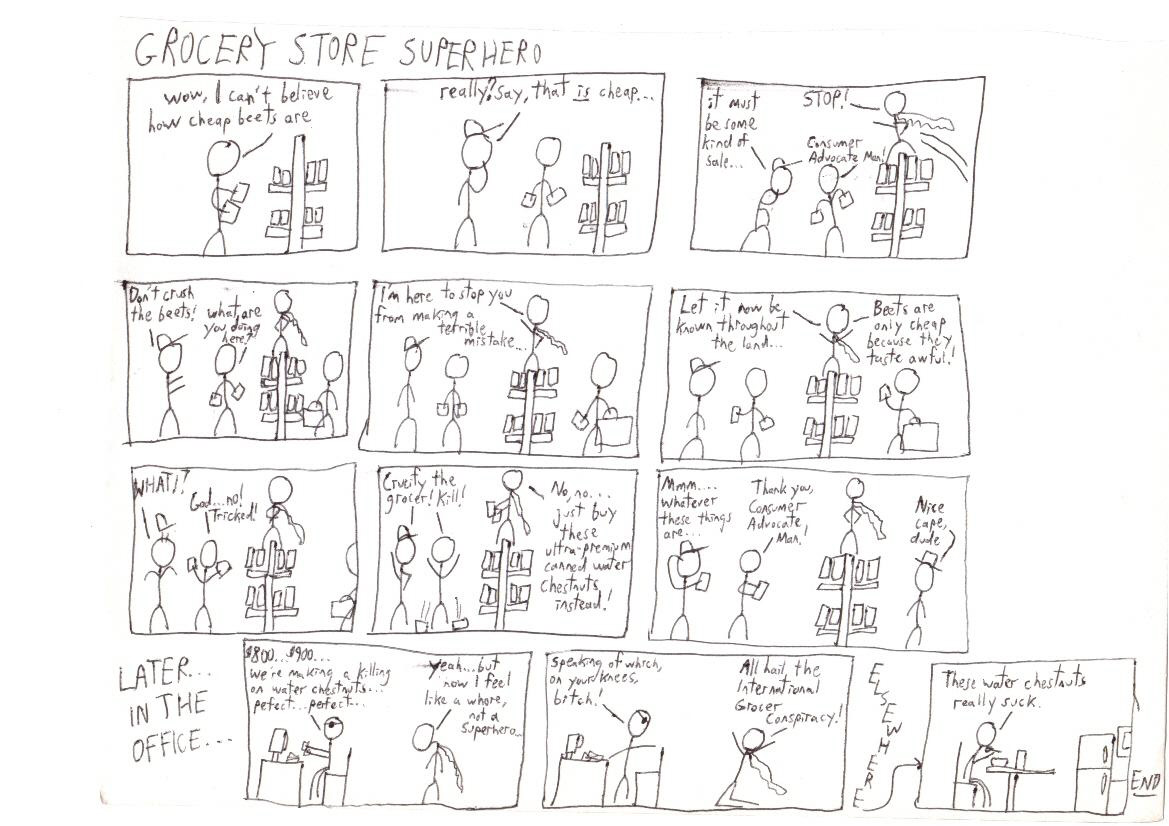 GROCERY STORE SUPERHERO
wow, I can't believe
how cheap beets are
really? Say, that is cheap...
it must
be some
kind of
sale...
STOP!
Consumer
Advocate Man!
Don't crush
the beets!
what are
you doing
here?
I'm here to stop you
from making a
terrible
mistake...
Let it now be
known throughout
the land...
Beets are
only cheap
because they
taste awful!
WHAT!?
God...no!
Tricked!
Crucify the
grocer! Kill!
No, no...
just buy
these
ultra-premium
canned water
chestnuts
instead!
Mmm....
whatever
these things
are...
Thank you,
Consumer
Advocate
Man!
Nice
cape,
dude
LATER...
IN THE
OFFICE...
$800...$900...
we're making a killing
on water chestnuts...
pefect...perfect...
yeah...but
now I feel
like a whore,
not a
superhero...
Speaking of which,
on your knees,
bitch!
All hail the
International
Grocer
Conspiracy!
ELSEWHERE
These water chestnuts
really suck.
END